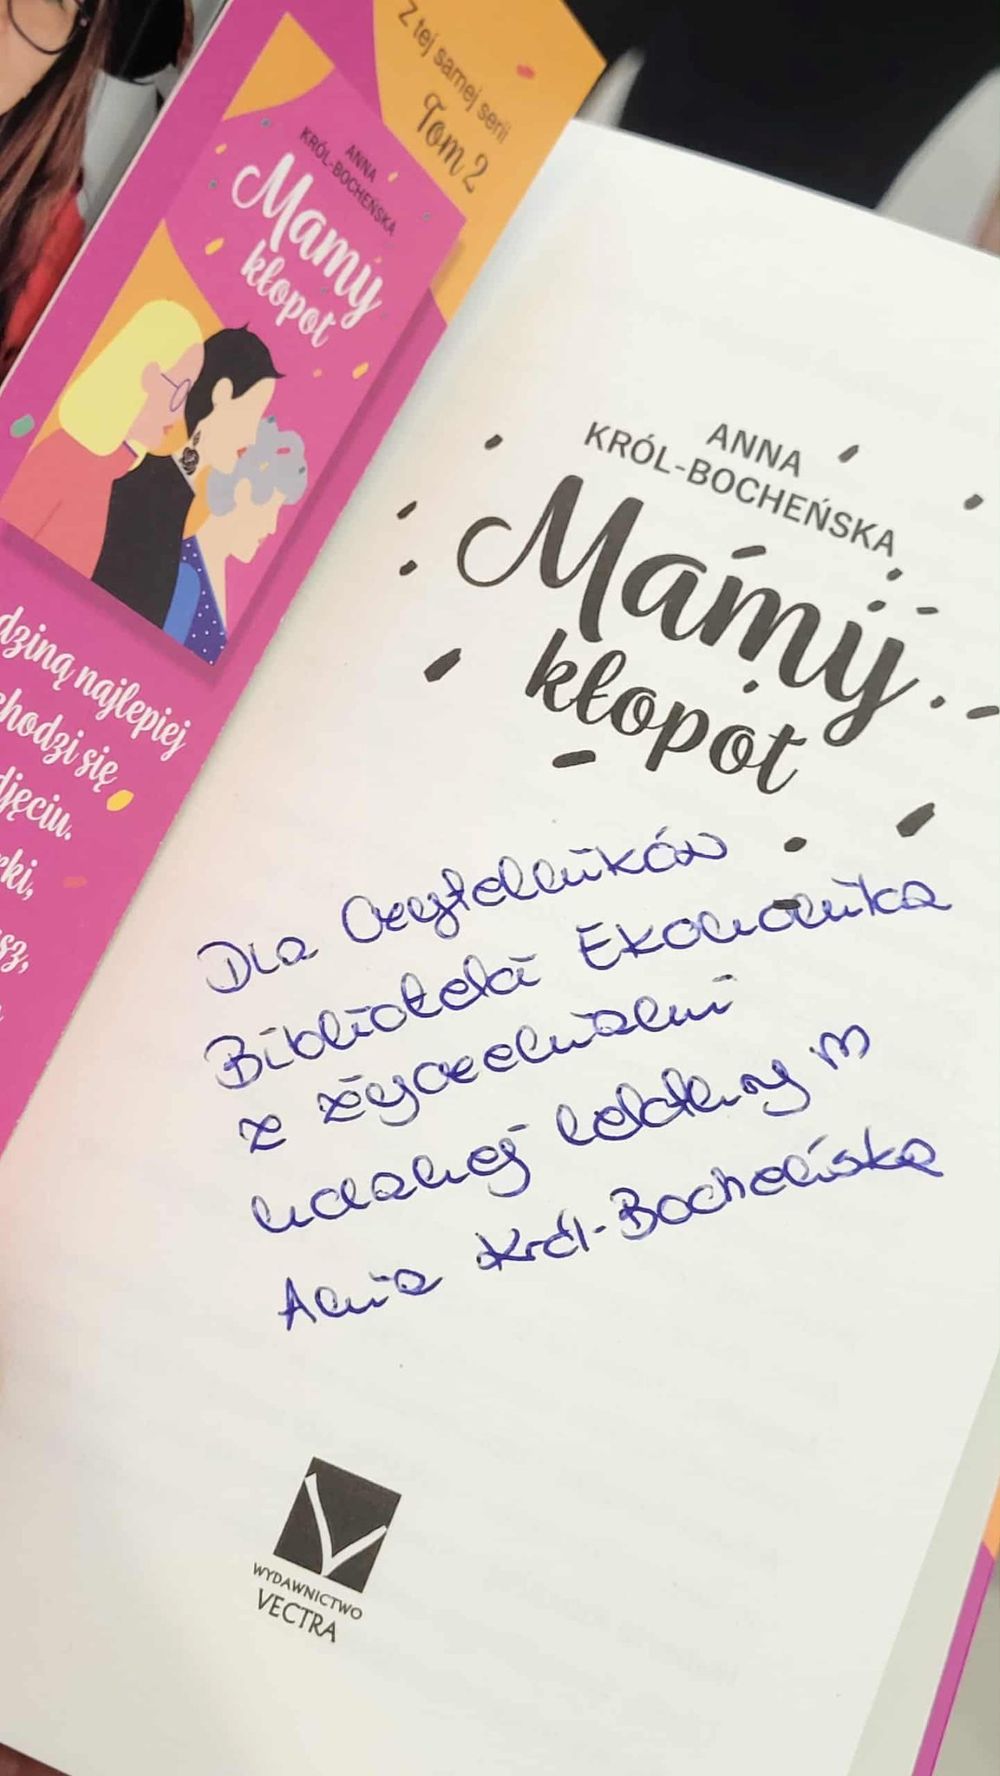 Z tej samej serii
Tom 2
ANNA
KRÓL-BOCHEŃSKA
Mamy
kłopot
dziną najlepiej
chodzi się
djęciu.
rki,
sz,
ANNA
KRÓL-BOCHEŃSKA
Mamy
kłopot
Dla Czytelników
Biblioteki Ekonomika
z życzeniami
udanej lektury
Ania Król-Bocheńska
WYDAWNICTWO
VECTRA